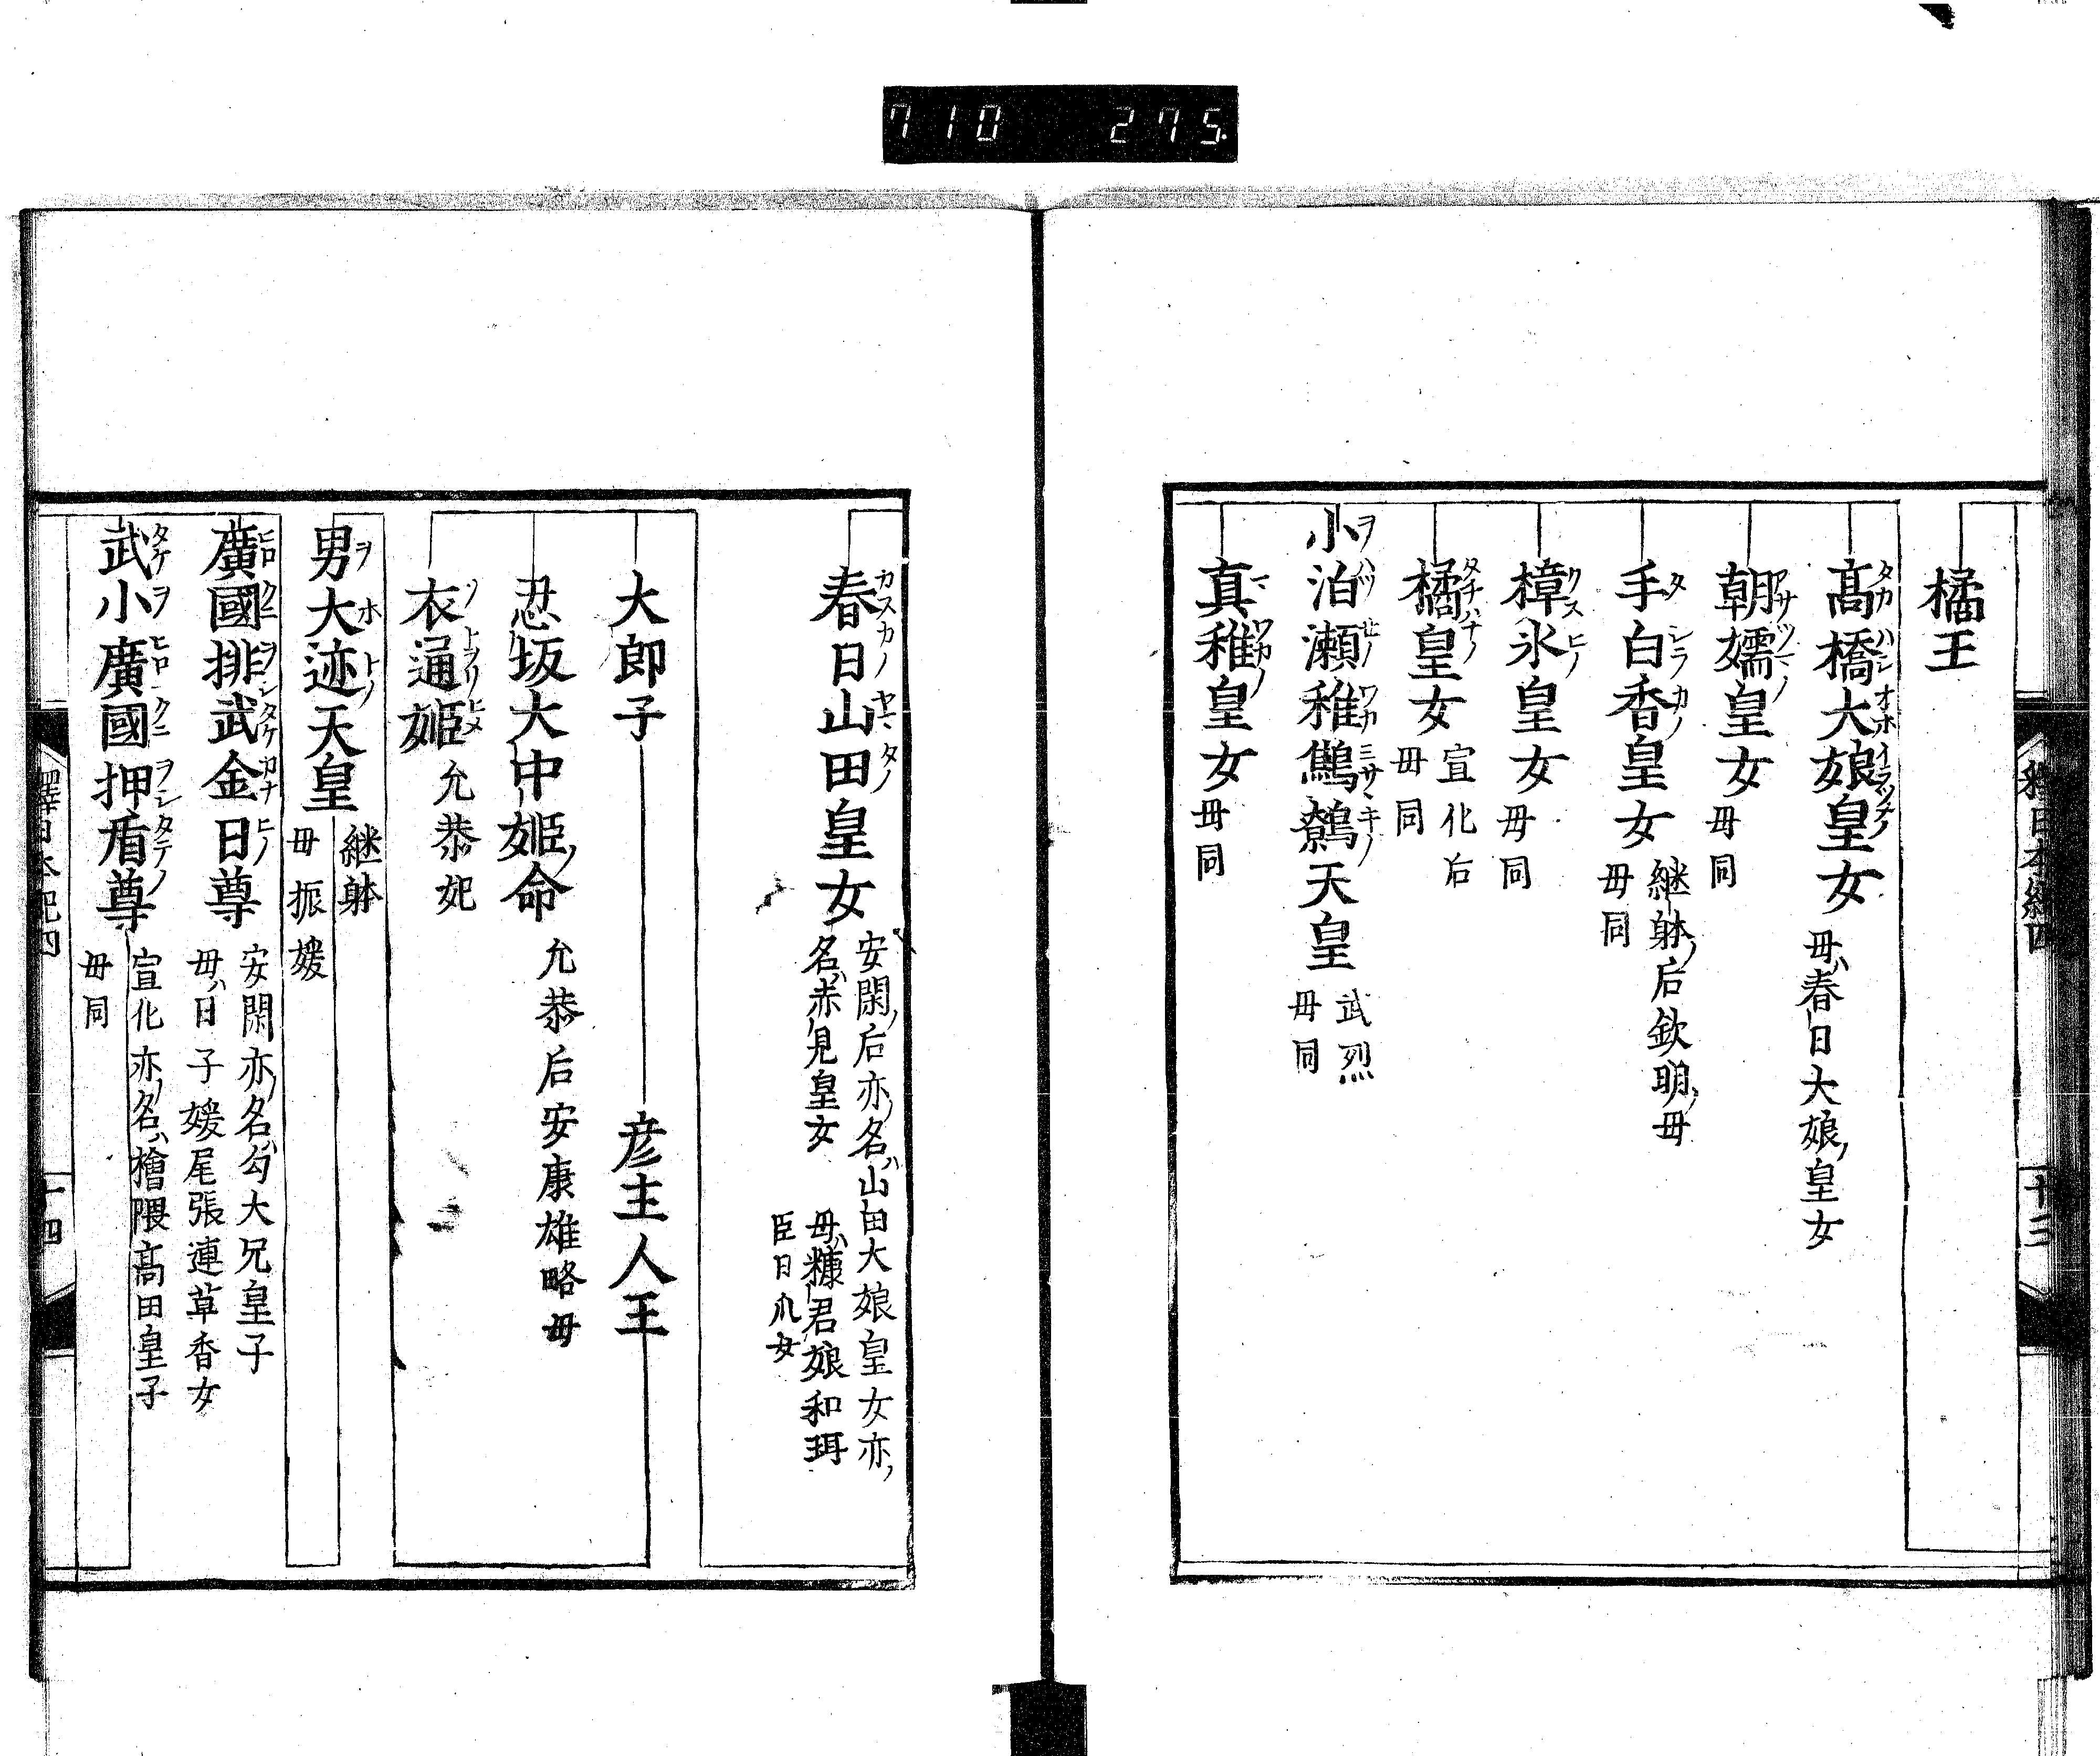 710 275
橘王
髙橋大娘皇女 毋ハ春日大娘ノ皇女
朝嬬皇女 毋同
手白香皇女 継躰ノ后欽明ノ毋
毋同
樟氷皇女 毋同
橘皇女 宣化后
毋同
小泊瀬稚鷦鷯天皇 武烈
毋同
真稚皇女 毋同
十三
春日山田皇女 安閑ノ后亦ノ名ハ山田大娘皇女亦ノ
名ハ赤見皇女 毋ハ糠君娘和珥
臣日爪女
大郎子 彦主人王
忍坂大中姫ノ命 允恭后安康雄略毋
衣通姫 允恭妃
男大迹天皇 継躰
毋振媛
廣國排武金日尊 安閑亦ノ名ハ勾大兄皇子
毋ハ日子媛尾張連草香女
武小廣國押盾尊 宣化亦ノ名ハ檜隈髙田皇子
毋同
釋日本紀四
十四